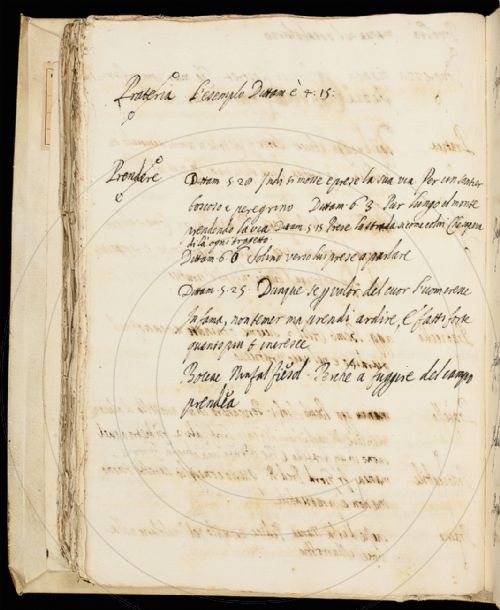 Prateria L'esemplo Dittam è 4. 15.
Prendere Dittam. 5. 20 Indi si mosse e prese la sua via Per un sentier
boscoso e peregrino Dittam. 6 3. Pur lungo el monte
prendendo la via Dittam. 5. 15 Prese la strada
di là ogni tragetto
Dittam. 6. 6 Solino verso lui prese a parlare
Dittam. 5. 25. Dunque se 'l valor del cuor
In fama, non temer ma prendi ardire, E fatti forte
quanto più t' incresce
Bocac Ninfal fiesol. Perchè a fuggire del campo
prendea